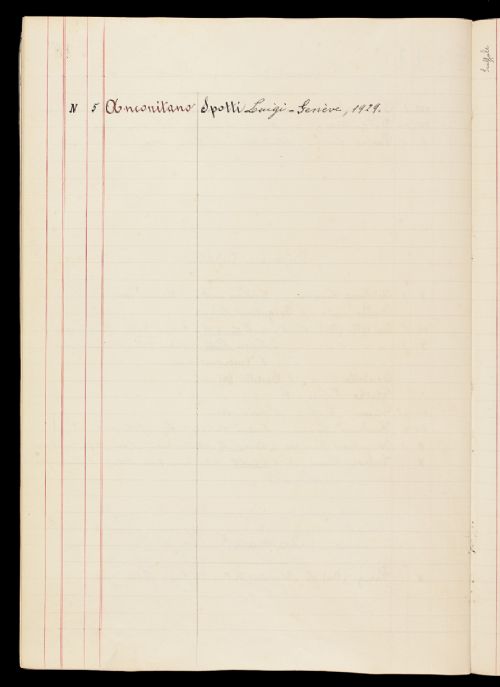 N 5 Anconitano Spotti Luigi - Genève, 1929.